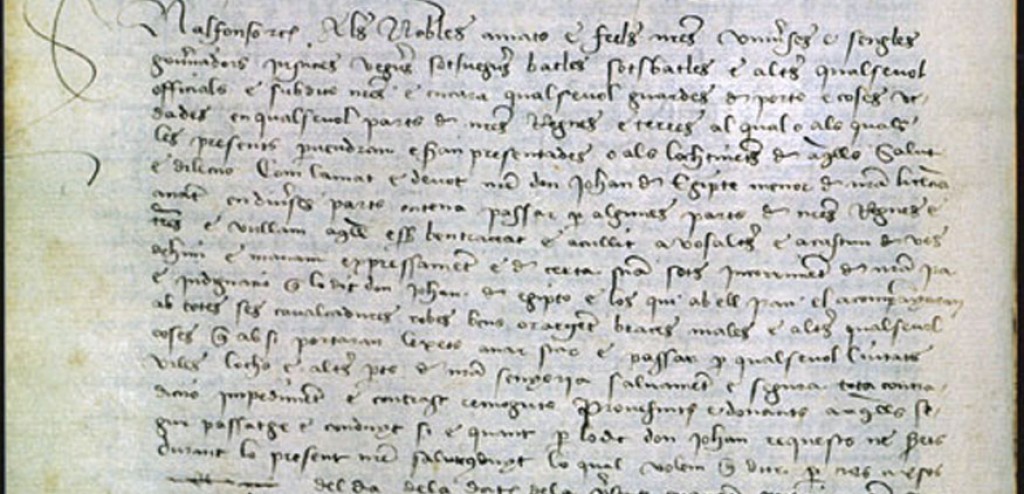 Nalfonso etc. Als Nobles amats e feels nres universes e sengles
governadors justicies veguers sotsveguers batles sotsbatles e altres qualsevol
officials e subdits nres e encara qualsevol guardes de ports e coses ve-
dades en qualsevol parts de nres Regnes e terres al qual o als quals
les presents pervendran e seran presentades o als lochtinents de aquells Salut
e dileccio Com lamat e devot nre don Johan de Egipte menor de nra licencia
anant en diverses parts entena passar per algunes parts de nres Regnes e
terres e vullam aquell esser ben tractat e acullit a vosaltres e a cascun de vos
dehim e manam expressament e de certa sciencia sots incorriment de nra ira
e indignacio que lo dit don Johan de Egipto e los qui ab ell iran el acompanyaran
ab totes ses cavalcadures robes bens or argent bolges males e altres qualsevol
coses que ab si portaran lexets anar star e passar per qualsevol Ciutats
viles lochs e altres parts de nra senyoria salvament e segura tota contra-
diccio impediment e contrast remoguts Provehints e donants a aquells se-
gur passatge e conduyt si e quant per lo dit don Johan requests ne sereu
durant lo present nre salvconduyt lo qual volem que dur per tres mesos
del dia dela data dela present